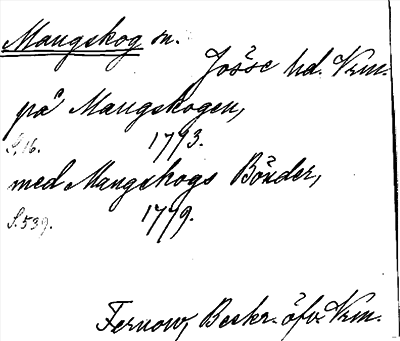 Mangskog sn.
Jösse hd. Vrm.
på Mangskogen,
S. 16. 1773.
med Mangskogs Bönder,
S. 539. 1779.
Fernow, Beskr. öfv. Vrm.